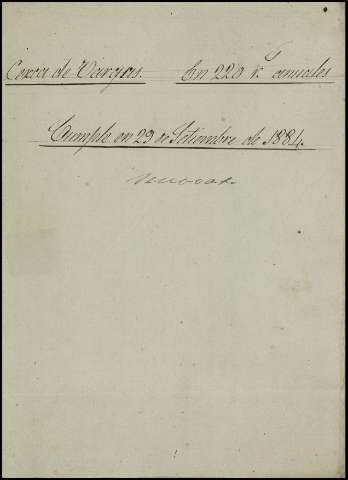 Coxa de Vargas. En 220 r.s anuales
Cumple en 29 de Setiembre de 1884.